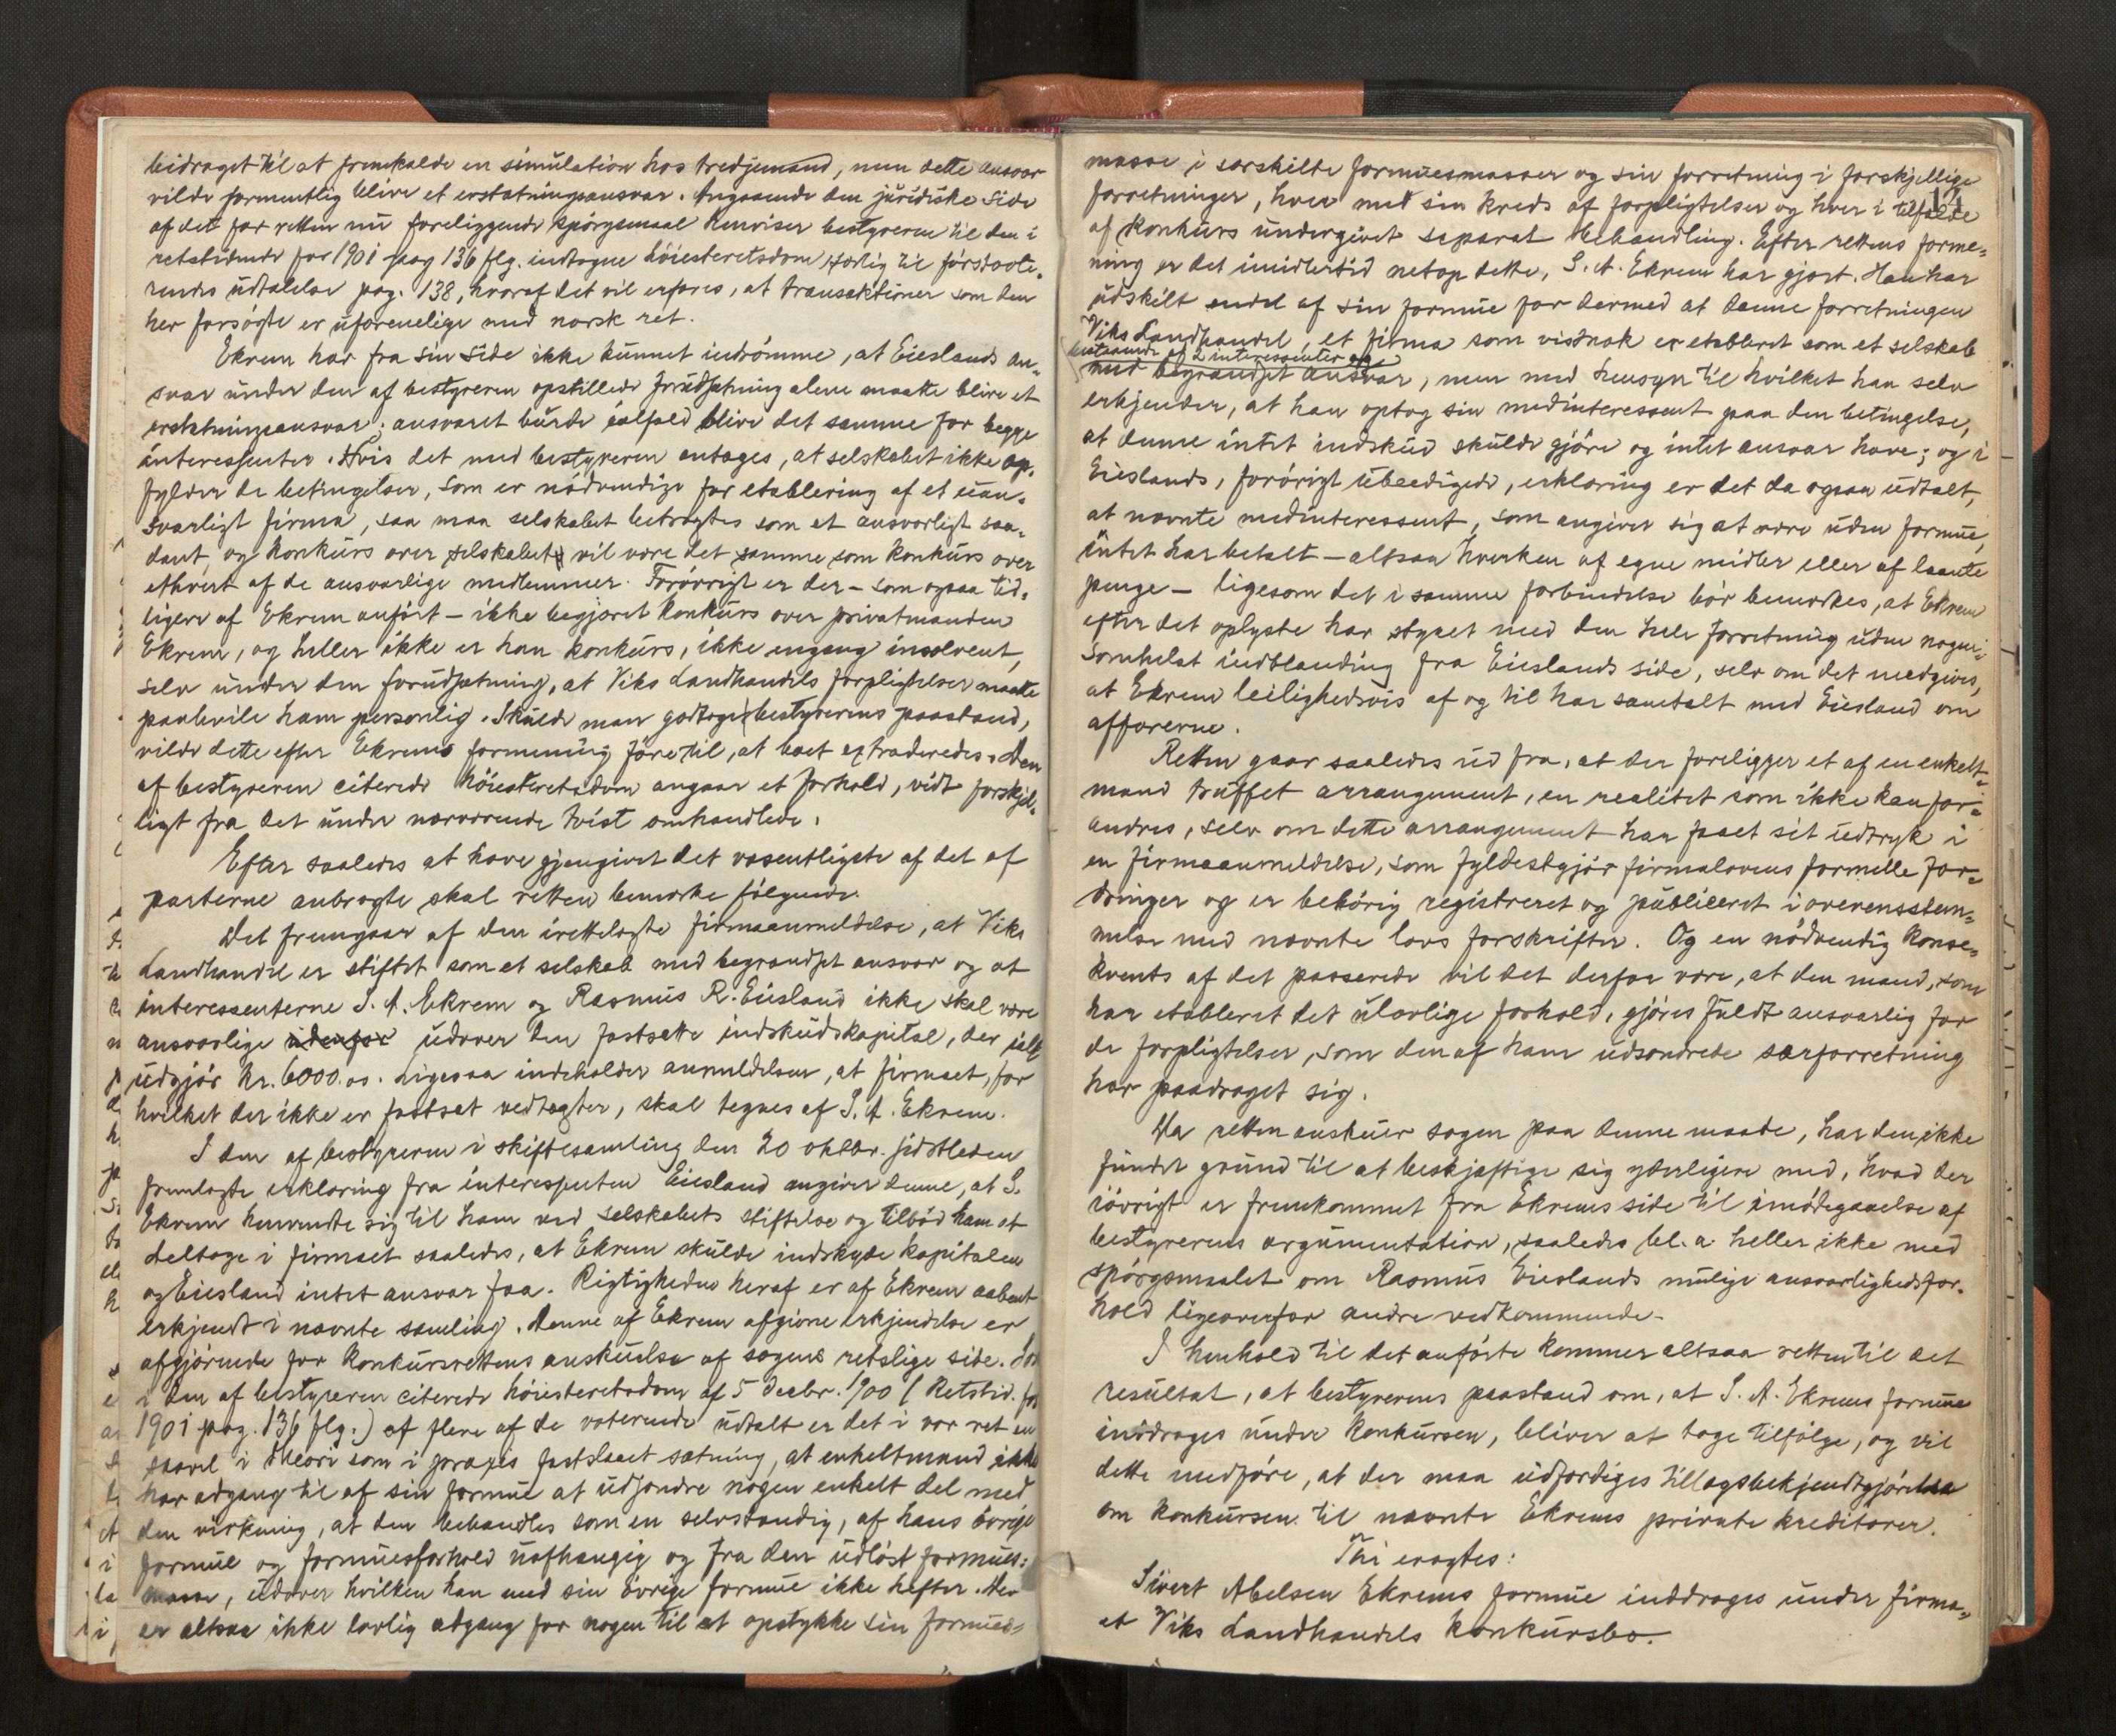 bidraget til at fremkalde en simulation hos tredjemand, men dette ansvar
vilde formentlig blive et erstatningsansvar. Angaaende den juridiske side
af det for retten nu foreliggende spörgsmaal henviser bestyreren til den i
retstidende for 1901 pag 136 flg. indtagne höiesteretsdom særlig til förstvote-
rendes udtalelse pag. 138, hvoraf det vil erfares, at transaktioner som den
her forsögte er uforenelige med norsk ret.
Ekrem har fra sin side ikke kunnet indrömme, at Eieslands an-
svar under den af bestyreren opstillede forudsætning alene maatte blive et
erstatningsansvar; ansvaret burde ialfald blive det samme for begge
interessenter. Hvis det med bestyreren antages, at selskabet ikke op-
fylder de betingelser, som er nödvendige for etablering af et uan-
svarligt firma, saa maa selskabet betragtes som et ansvarligt saa-
dant, og konkurs over selskabet vil være det samme som konkurs over
ethvert af de ansvarlige medlemmer. Forövrigt er der - som ogsaa tid-
ligere af Ekrem anfört - ikke begjæret konkurs over privatmanden
Ekrem, og heller ikke er han konkurs, ikke engang insolvent,
selv under den forudsætning, at Viks Landhandels forpligtelser maatte
paahvile ham personlig. Skulde man godtage bestyrerens paastand,
vilde dette efter Ekrems formening före til, at boet extraderedes. Den
af bestyreren citerede höiesteretsdom angaar et forhold, vidt forskjel-
ligt fra det under nærværende tvist omhandlede.
Efter saaledes at have gjengivet det væsentligste af det af
parterne anbragte skal retten bemærke fölgende.
Det fremgaar af den irettelagte firmaanmeldelse, at Viks
Landhandel er stiftet som et selskab med begrændset ansvar og at
interessenterne S. A. Ekrem og Rasmus R. Eiesland ikke skal være
ansvarlige udenfor udover den fastsatte indskudskapital, der ialt
udgjör kr. 6000.00. Ligesaa indeholder anmeldelsen, at firmaet, for
hvilket der ikke er fastsat vedtægter, skal tegnes af S. A. Ekrem.
I den af bestyreren i skiftesamling den 20 oktbr. sidstleden
fremlagte erklæring fra interessenten Eiesland angiver denne, at S.
Ekrem henvendte sig til ham ved selskabets stiftelse og tilböd ham at
deltage i firmaet saaledes, at Ekrem skulde indskyde kapitalen
og Eiesland intet ansvar faa. Rigtigheden heraf er af Ekrem aabent
erkjendt i nævnte samling. Denne af Ekrem afgivne erkjendelse er
afgjörende for konkursrettens anskuelse af sagens retslige side. Som
i den af bestyreren citerede höiesteretsdom af 5 decbr. 1900 (Retstid. for
1901 pag. 136 flg.) af flere af de voterende udtalt er det i vor ret en
saavel i theori som i praxis fastslaaet sætning, at enkeltmand ikke
har adgang til af sin formue at udsondre nogen enkelt del med
den virkning, at den behandles som en selvstændig, af hans övrige
formue og formuesforhold uafhængig og fra den udlöst formues-
masse, udover hvilken han med sin övrige formue ikke hefter. Der
er altsaa ikke lovlig adgang for nogen til at opstykke sin formues-
121
masse i særskilte formuesmasser og sin forretning i forskjellige
forretninger, hver med sin kreds af forpligtelser og hver i tilfælde
af konkurs undergivet separat behandling. Efter rettens forme-
ning er det imidlertid netop dette, S. A. Ekrem har gjort. Han har
udskilt endel af sin formue for dermed at danne forretningen
Viks Landhandel, et firma som vistnok er etableret som et selskab
bestaaende af 2 interessenter og
med begrændset ansvar, men med hensyn til hvilket han selv
erkjender, at han optog sin medinteressent paa den betingelse,
at denne intet indskud skulde gjöre og intet ansvar have; og i
Eieslands, forövrigt ubeedigede, erklæring er det da ogsaa udtalt,
at nævnte medinteressent, som angiver sig at være uden formue,
intet har betalt - altsaa hverken af egne midler eller af laante
penge - ligesom det i samme forbindelse bör bemærkes, at Ekrem
efter det oplyste har styret med den hele forretning uden nogen-
somhelst indblanding fra Eieslands side, selv om det medgives,
at Ekrem leilighedsvis af og til har samtalt med Eiesland om
affærerne.
Retten gaar saaledes ud fra, at der foreligger et af en enkelt-
mand truffet arrangement, en realitet som ikke kan for-
andres, selv om dette arrangement har faaet sit udtryk i
en firmaanmeldelse, som fyldestgjör firmalovens formelle for-
dringer og er behörig registreret og publiceret i overensstem-
melse med nævnte lovs forskrifter. Og en nödvendig konse-
kvents af det passerede vil det derfor være, at den mand, som
har etableret det ulovlige forhold, gjöres fuldt ansvarlig for
de forpligtelser, som den af ham udsondrede særforretning
har paadraget sig.
Da retten anskuer sagen paa denne maade, har den ikke
fundet grund til at beskjæftige sig yderligere med, hvad der
iövrigt er fremkommet fra Ekrems side til imödegaaelse af
bestyrerens argumentation, saaledes bl. a. heller ikke med
spörgsmaalet om Rasmus Eieslands mulige ansvarlighedsfor-
hold ligeoverfor andre vedkommende.
I henhold til det anförte kommer altsaa retten til det
resultat, at bestyrerens paastand om, at S. A. Ekrems formue
inddrages under konkursen, bliver at tage tilfölge, og vil
dette medföre, at der maa udfærdiges tillægsbekjendtgjörelse
om konkursen til nævnte Ekrems private kreditorer.
Thi eragtes:
Sivert Abelsen Ekrems formue inddrages under firma-
et Viks Landhandels konkursbo.